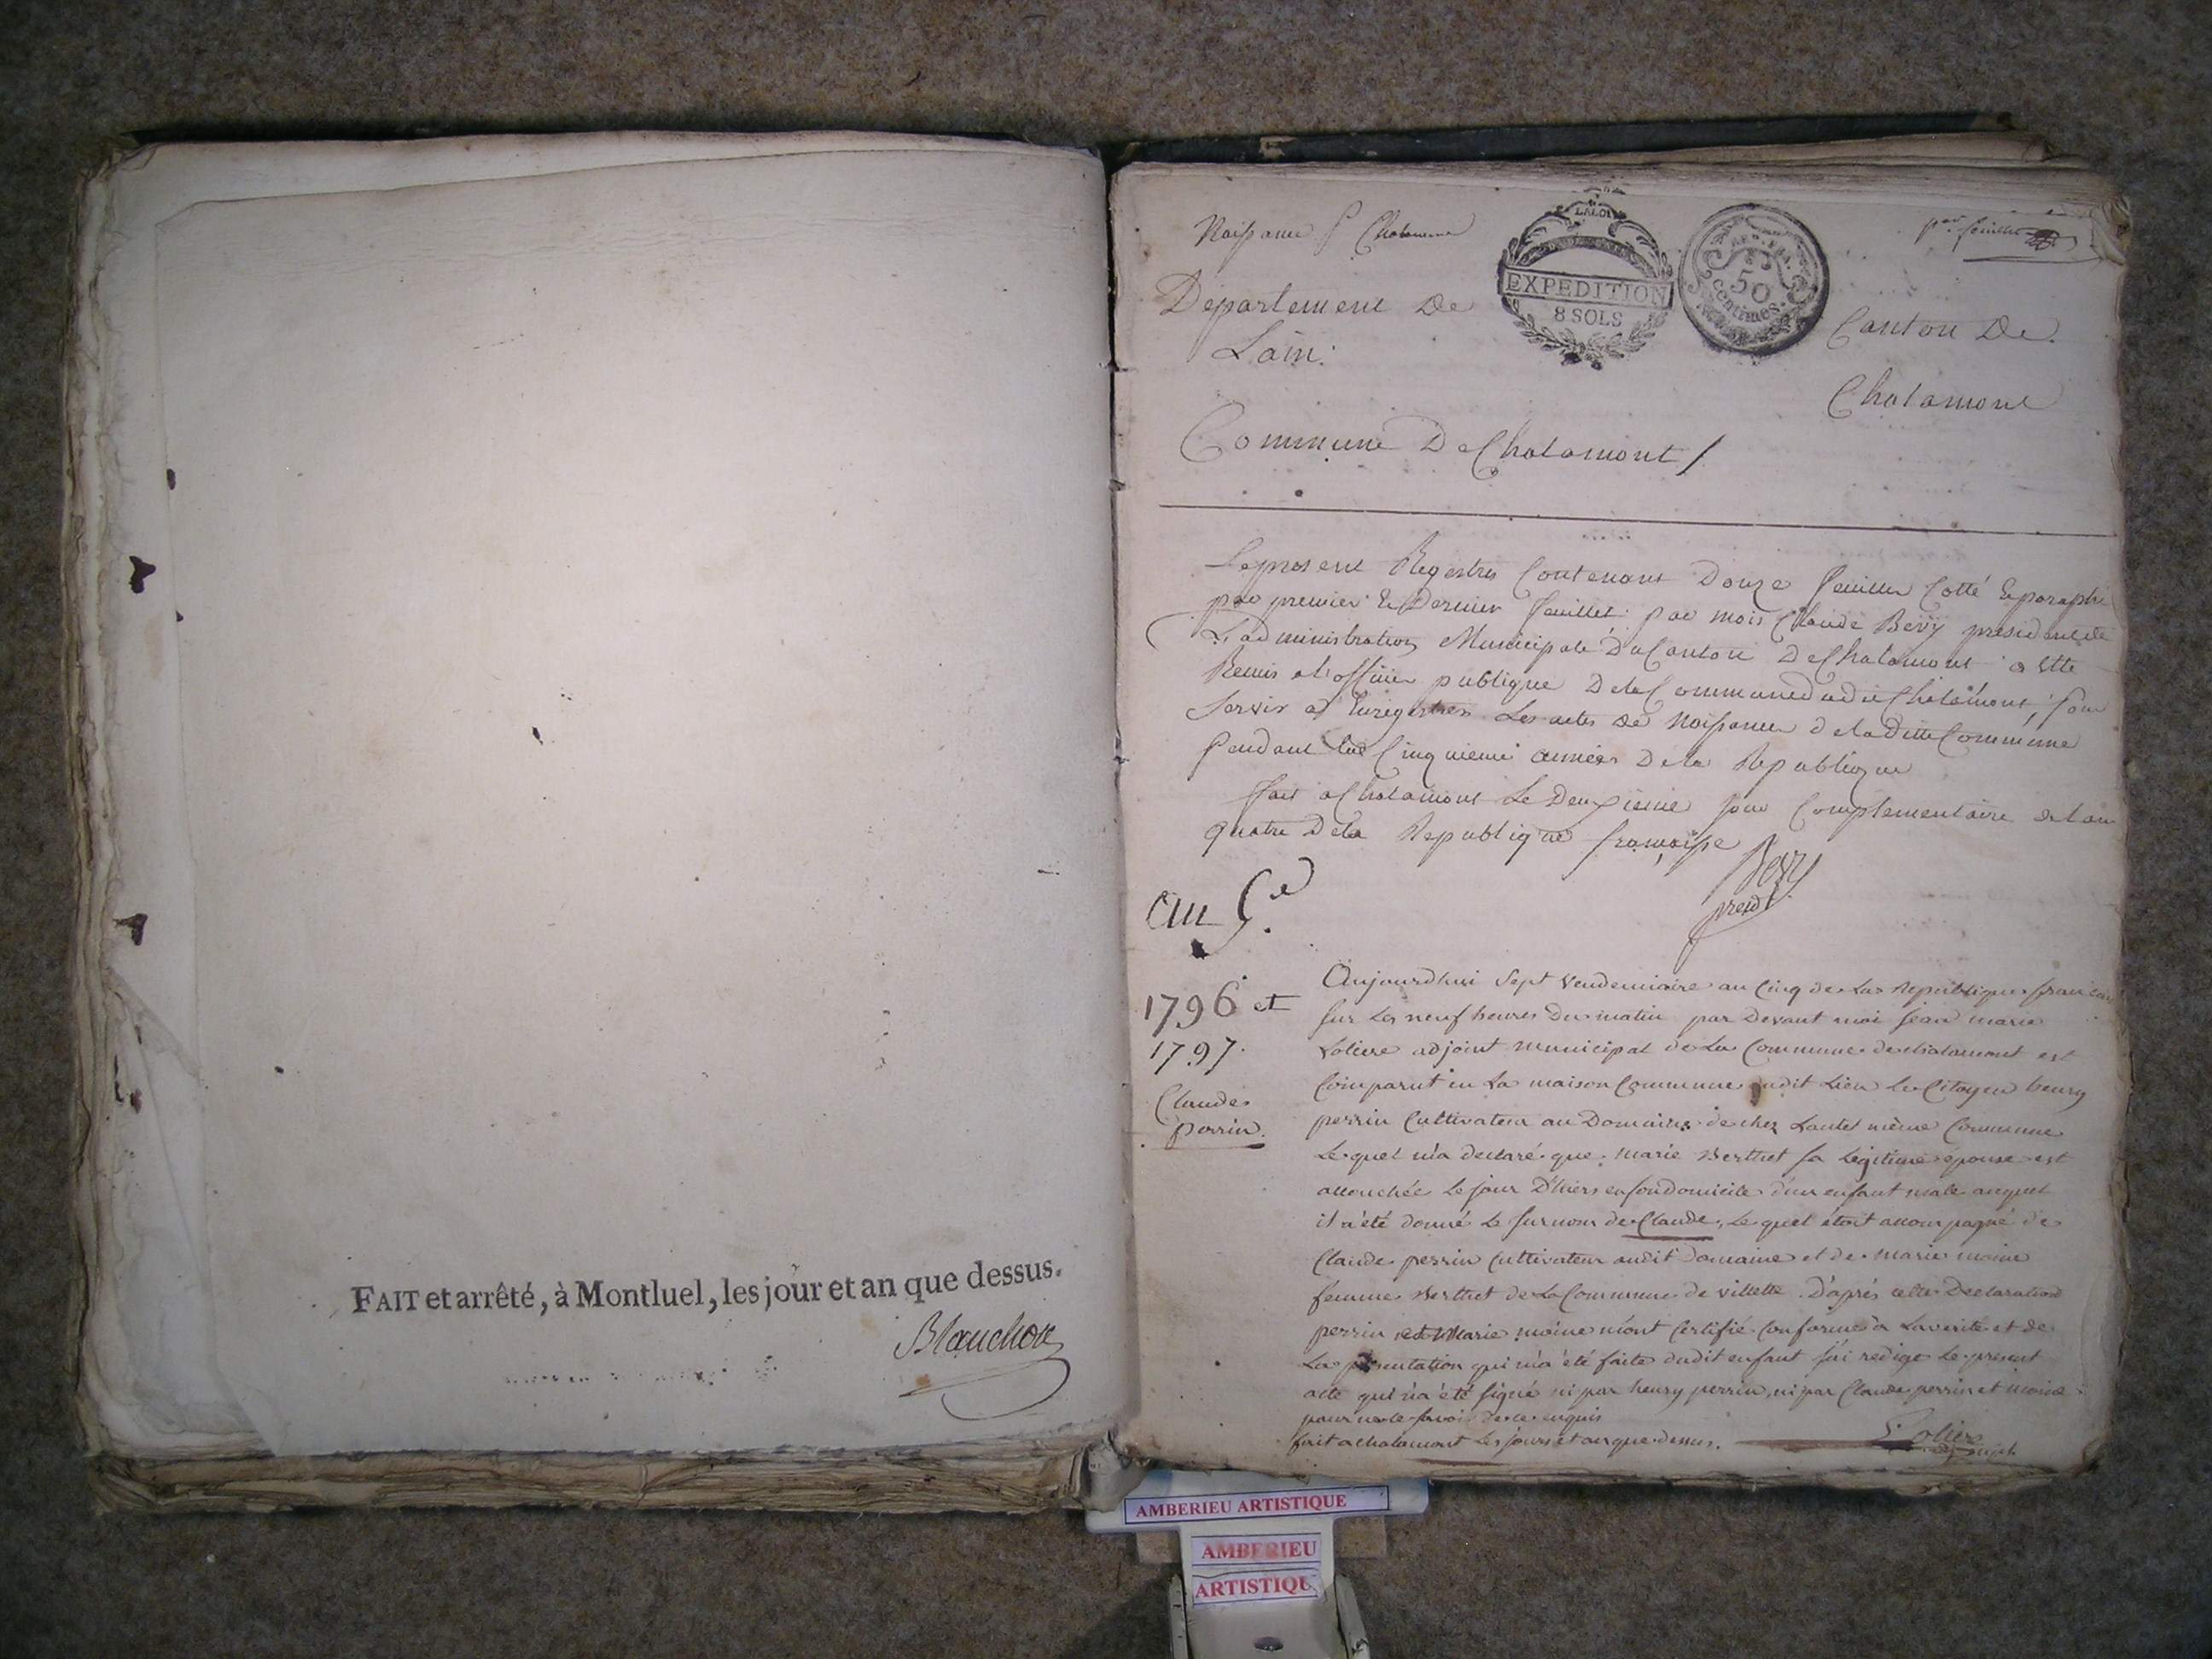 FAIT et arrêté, à Montluel, les jour et an que dessus.
Blanchon
Naissance Chalamont
LA LOI
EXPEDITION
8 SOLS
REP. FRA.
50
centimes.
per feuillet
Departement De
Lain.
Canton De
Chalamont
Commune De Chalamont /
Le present Registre Contenant Douze feuillet Cotté Et paraphé
par premier Et Dernier feuillet par mois Claude Bevÿ president de
L'administration Municipale Du Canton De Chalamont a Etté
Remis a l'officier publique De la Commune dudit Chalamont, pour
Servir a Enregistrer Les actes de Naissance de la Ditte Commune
Pendant la Cinquieme année De la Republique
fait a Chalamont Le Deuxieme jour Complementaire de l'an
quatre De la Republique francaise
Bevÿ
presid
an 5e.
1796 et
1797.
Claude
perrin.
Aujourdhui Sept Vendemiaire an Cinq de La Republique francaise
sur Les neuf heures Du matin par Devant moi Jean marie
Loliere adjoint municipal de La Commune de chalamont est
Comparut en La maison Commune dudit Lieu Le Citoyen henry
perrin Cultivateur au Domaine de chez Lantel même Commune
Le quel m'a declaré que marie Berthet sa Legitime epouse est
accouchée Le jour D'hiers en son domicile d'un enfant male auquel
il a été donné Le surnom de Claude, Le quel étoit accompagné de
Claude perrin Cultivateur audit domaine et de marie moine
femme Berthet de La Commune de villette. D'aprés cette Declaration
perrin et Marie moine m'ont Certifié Conforme a La verité et de
La presentation qui m'a été faite dudit enfant j'ai redigé Le present
acte qui n'a été signé ni par henry perrin, ni par Claude perrin et moine
pour ne le savoir de ce enquis
fait a chalamont Les jours et an que dessus.
Loliere
adjoint
AMBERIEU ARTISTIQUE
AMBERIEU
ARTISTIQUE